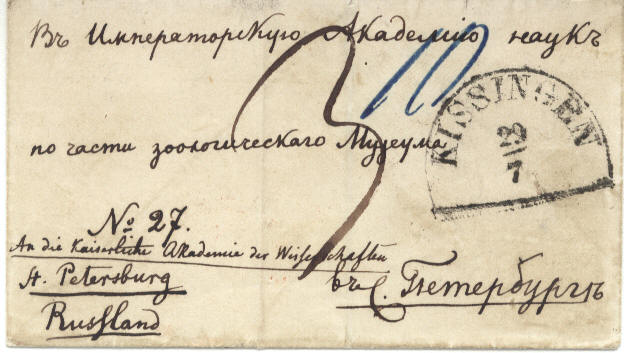 Въ Императорскую Академію наукъ
KISSINGEN
29
7
по части зоологическаго Музеума
№ 27.
An die Kaiserliche Akademie der Wissenschaften
St. Petersburg
Russland
въ С. Петербургѣ